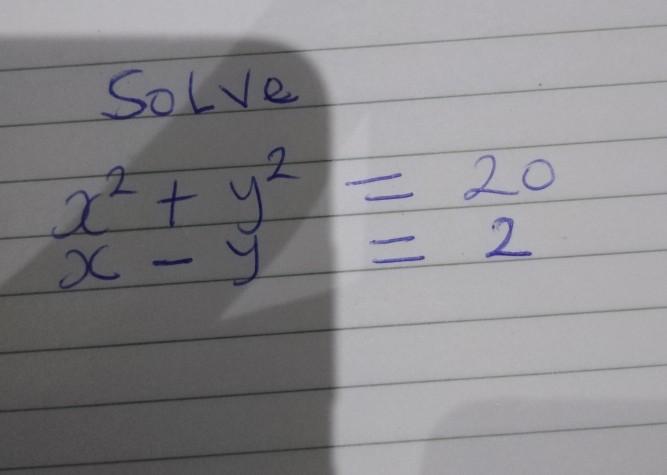 Solve
x² + y² = 20
x - y = 2